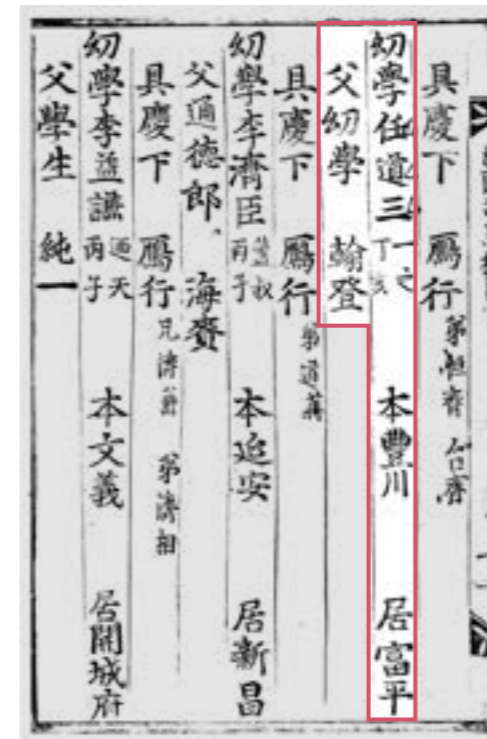 具慶下 鴈行 弟
幼學任道三 一之 丁亥 本豐川 居富平
父幼學 翰登
具慶下 鴈行 弟道
幼學李濟臣 叔 丙子 本延安 居新昌
父通德郎 海賚
具慶下 鴈行 兄濟 弟濟相
幼學李益 天 丙子 本文義 居開城府
父學生 純一